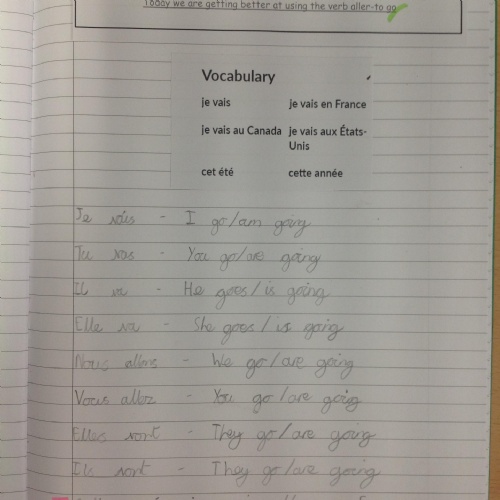 Today we are getting better at using the verb aller-to go
Vocabulary
je vais je vais en France
je vais au Canada je vais aux États-
Unis
cet été cette année
Je vais - I go/am going
Tu vas - You go/are going
Il va - He goes/is going
Elle va - She goes/is going
Nous allons - We go/are going
Vous allez - You go/are going
Elles vont - They go/are going
Ils vont - They go/are going